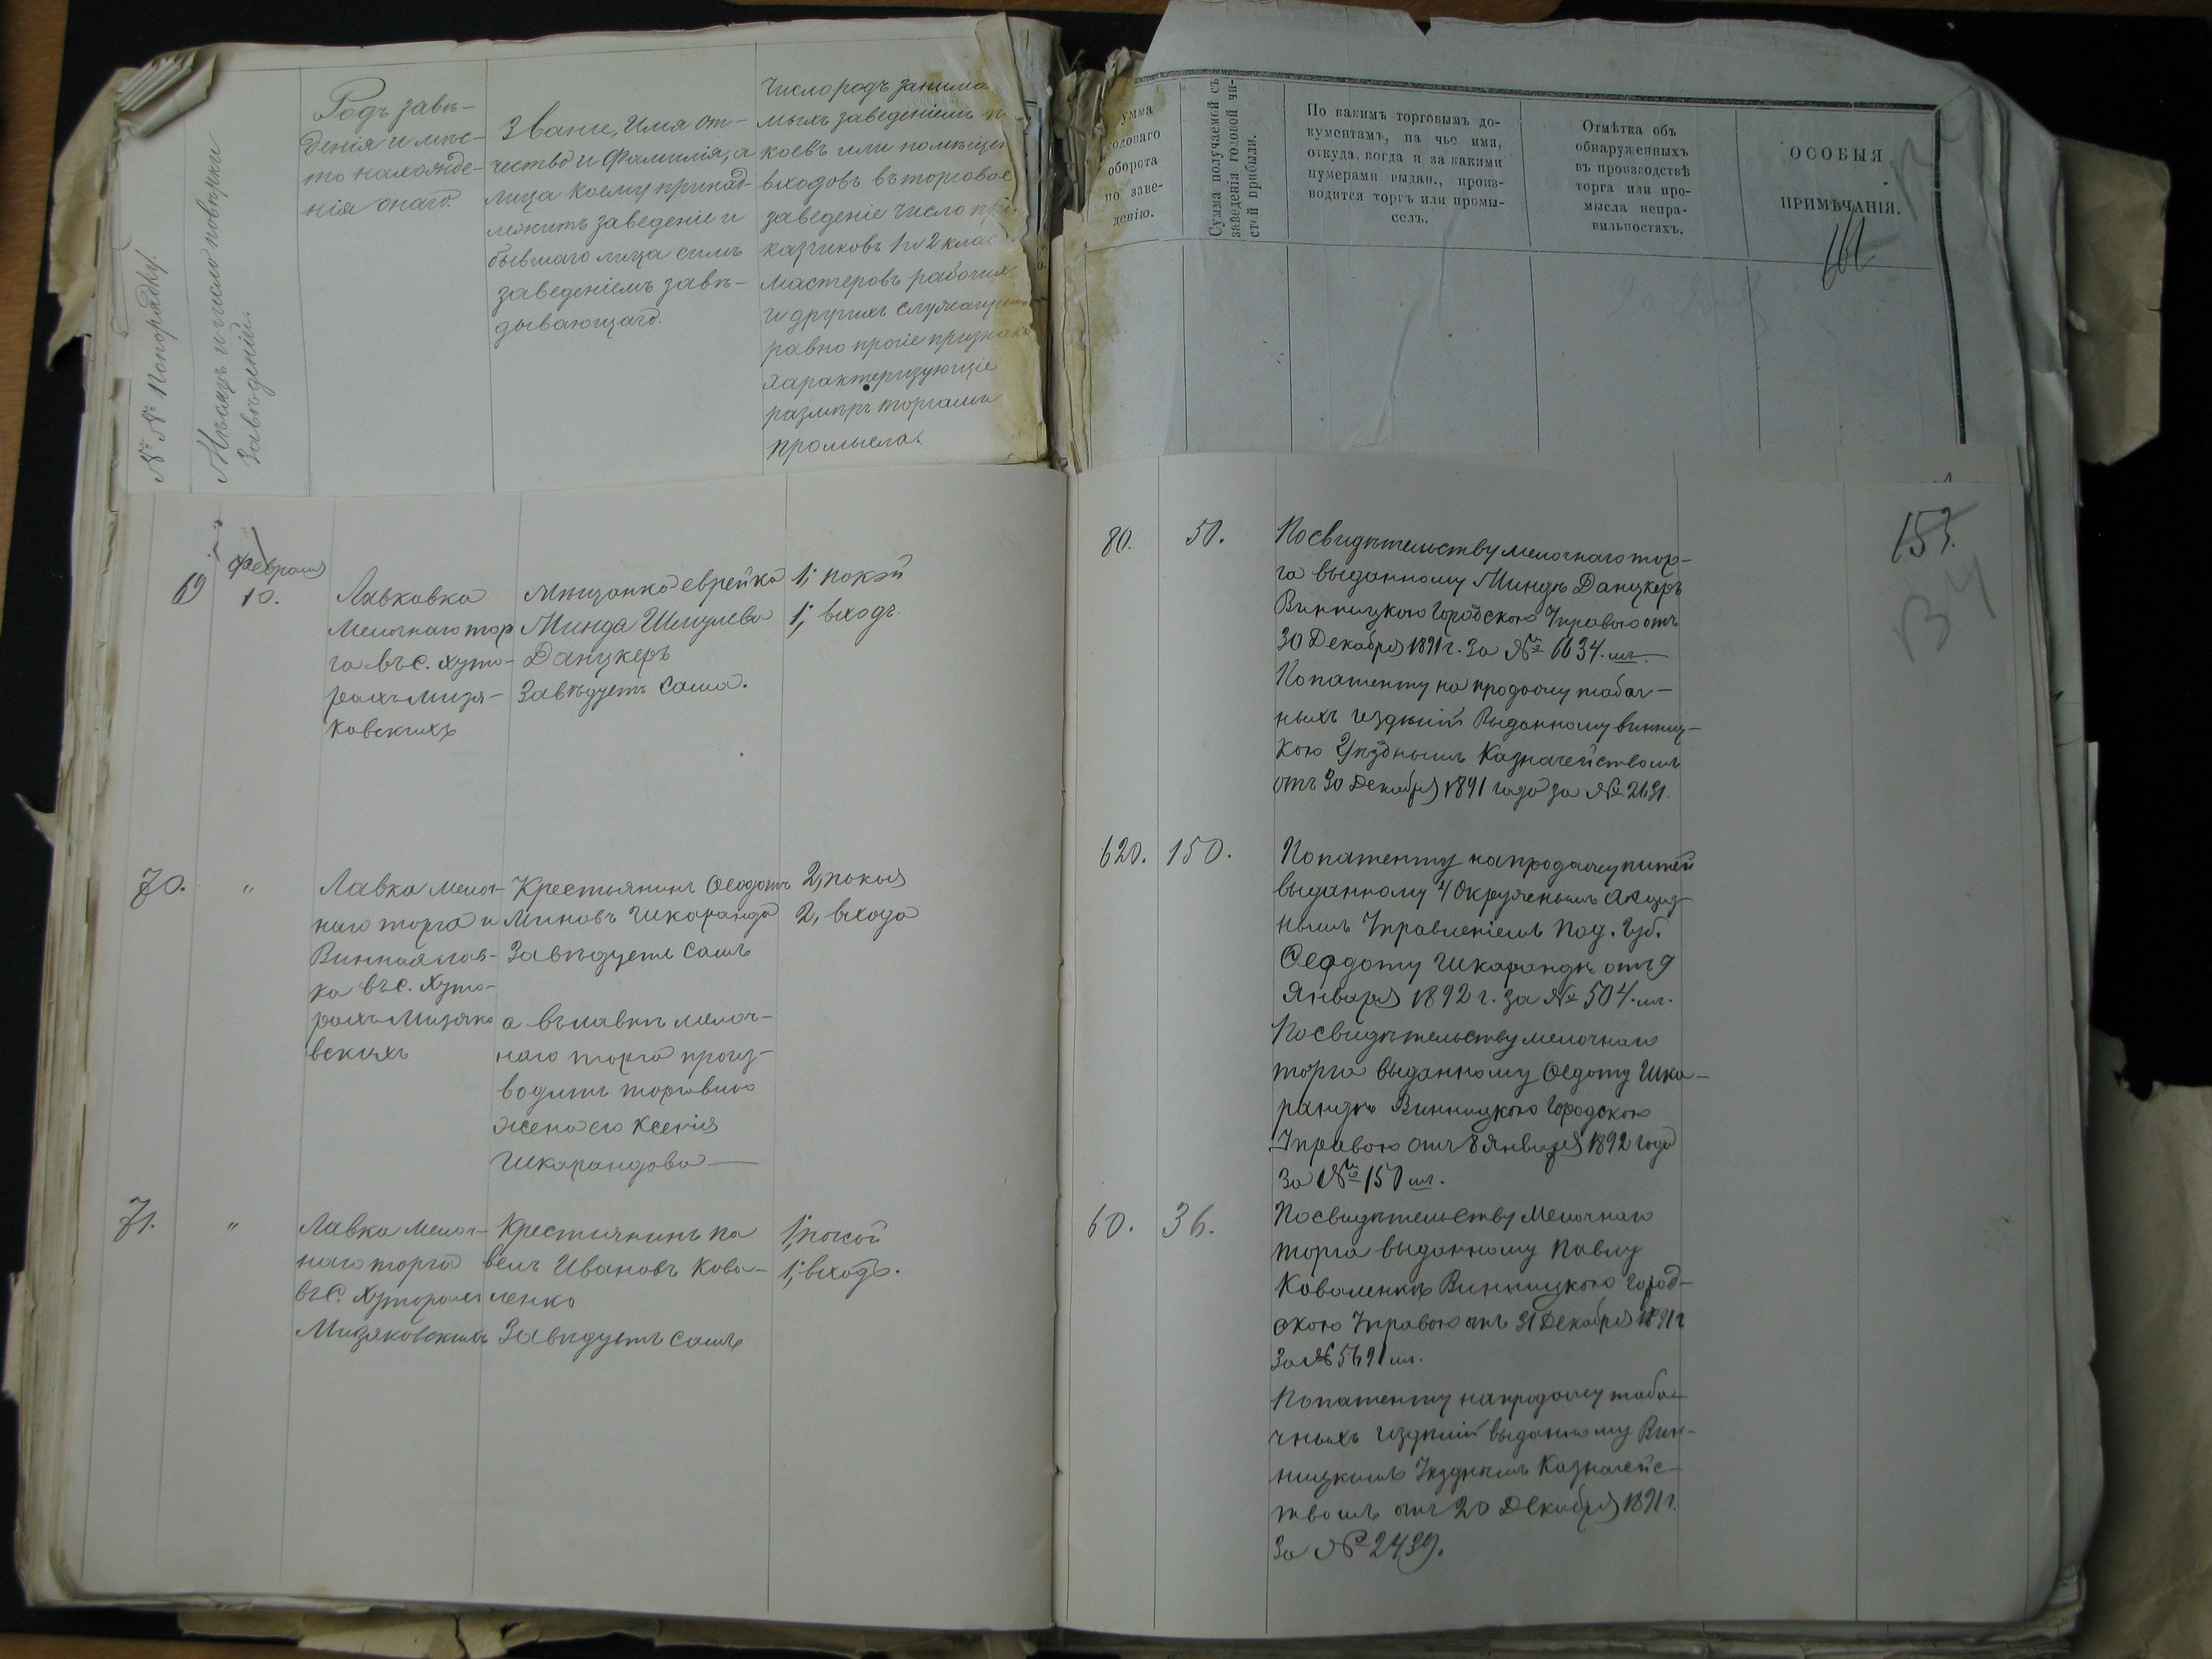 №№ Попорядку.
Мѣсяцъ и число повѣрки
Заведеній.
Родъ заве-
денія и мѣс-
то нахожде-
нія онаго.
Званіе, Имя от-
чество и Фамилія, а
лица коему принад-
лежитъ заведеніе и
бывшаго лица симъ
заведеніемъ завѣ-
дывающаго.
Число родъ занима
мыхъ заведеніемъ п
коевъ или помѣщен
входовъ въ торговое
заведеніе число при-
казчиковъ 1 и 2 клас
мастеровъ рабочихъ
и другихъ служащи
равно прочіе признаки
характеризующіе
размѣръ торга или
промысла.
умма
годоваго
оборота
по заве-
денію.
Сумма получаемой съ
заведенія годовой чи-
стой прибыли.
По какимъ торговымъ до-
кументамъ, на чье имя,
откуда, когда и за какими
нумерами выдан., произ-
водится торгъ или промы-
селъ.
Отмѣтка объ
обнаруженныхъ
въ производствѣ
торга или про-
мысла непра-
вильностяхъ.
ОСОБЫЯ
ПРИМѢЧАНІЯ.
69
Февраля
10.
Лавкавка
Мелочнаго тор
га въ с. Хуто-
рахъ Мизя-
ковскихъ
Мѣщанка еврейка
Минда Шмулева
Данцкеръ
Завѣдуетъ сама.
1, покой
1, входъ.
80.
50.
По свидѣтельству мелочнаго тор-
га выданному Миндѣ Данцкеръ
Винницкою Городскою Управою отъ
30 Декабря 1891 г. За № 6634. мл.
По патенту на продажу табач-
ныхъ издѣлій Выданному Винниц-
кою Уѣзднымъ Казначействомъ
отъ 30 Декабря 1891 года за № 2631.
153.
70.
"
Лавка мелоч-
наго торга и
Винная лав-
ка въ с. Хуто-
рахъ Мизяко
вскихъ
Крестьянинъ Ѳеодотъ
Миновъ Шкаранда
Завѣдуетъ самъ
а въ лавкѣ мелоч-
наго торга произ-
водитъ торговлю
жена его Ксенія
Шкарандова
2, покоя
2, входа
620.
150.
По патенту на продажу питей
выданному 4 Окружнымъ Акциз-
нымъ Управленіемъ Под. Губ.
Ѳеодоту Шкарандѣ отъ 9
Января 1892 г. за № 504. мл.
По свидѣтельству мелочнаго
торга выданному Ѳедоту Шка-
рандѣ Винницкою Городскою
Управою отъ 8 Января 1892 года
За № 150 мл.
71.
"
Лавка мелоч-
наго торга
въ с. Хуторахъ
Мизяковскихъ
Крестьянинъ Па
велъ Ивановъ Кова-
ленко
Завѣдуетъ самъ
1, покой
1, входъ.
60.
36.
По свидѣтельству Мелочнаго
торга выданному Павлу
Коваленкѣ Винницкою Город-
скою Управою отъ 31 Декабря 1891 г
За № 5691 мл.
По патенту на продажу таба-
чныхъ издѣлій выданному Вин-
ницкимъ Уѣзднымъ Казначейс-
твомъ отъ 20 Декабря 1891 г.
За № 2439.